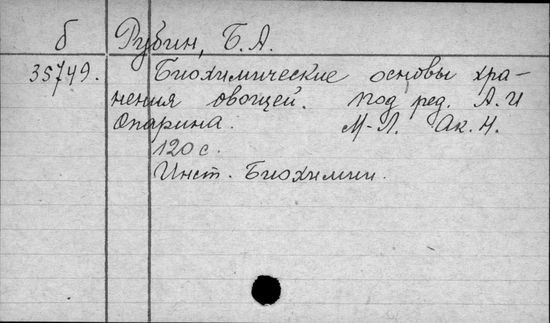 б Рубин, Б.А.
35749. Биохимические основы хра-
нения овощей. под ред. А.И
Опарина. М-Л. Ак. Н.
120 с.
Инст. Биохимии.